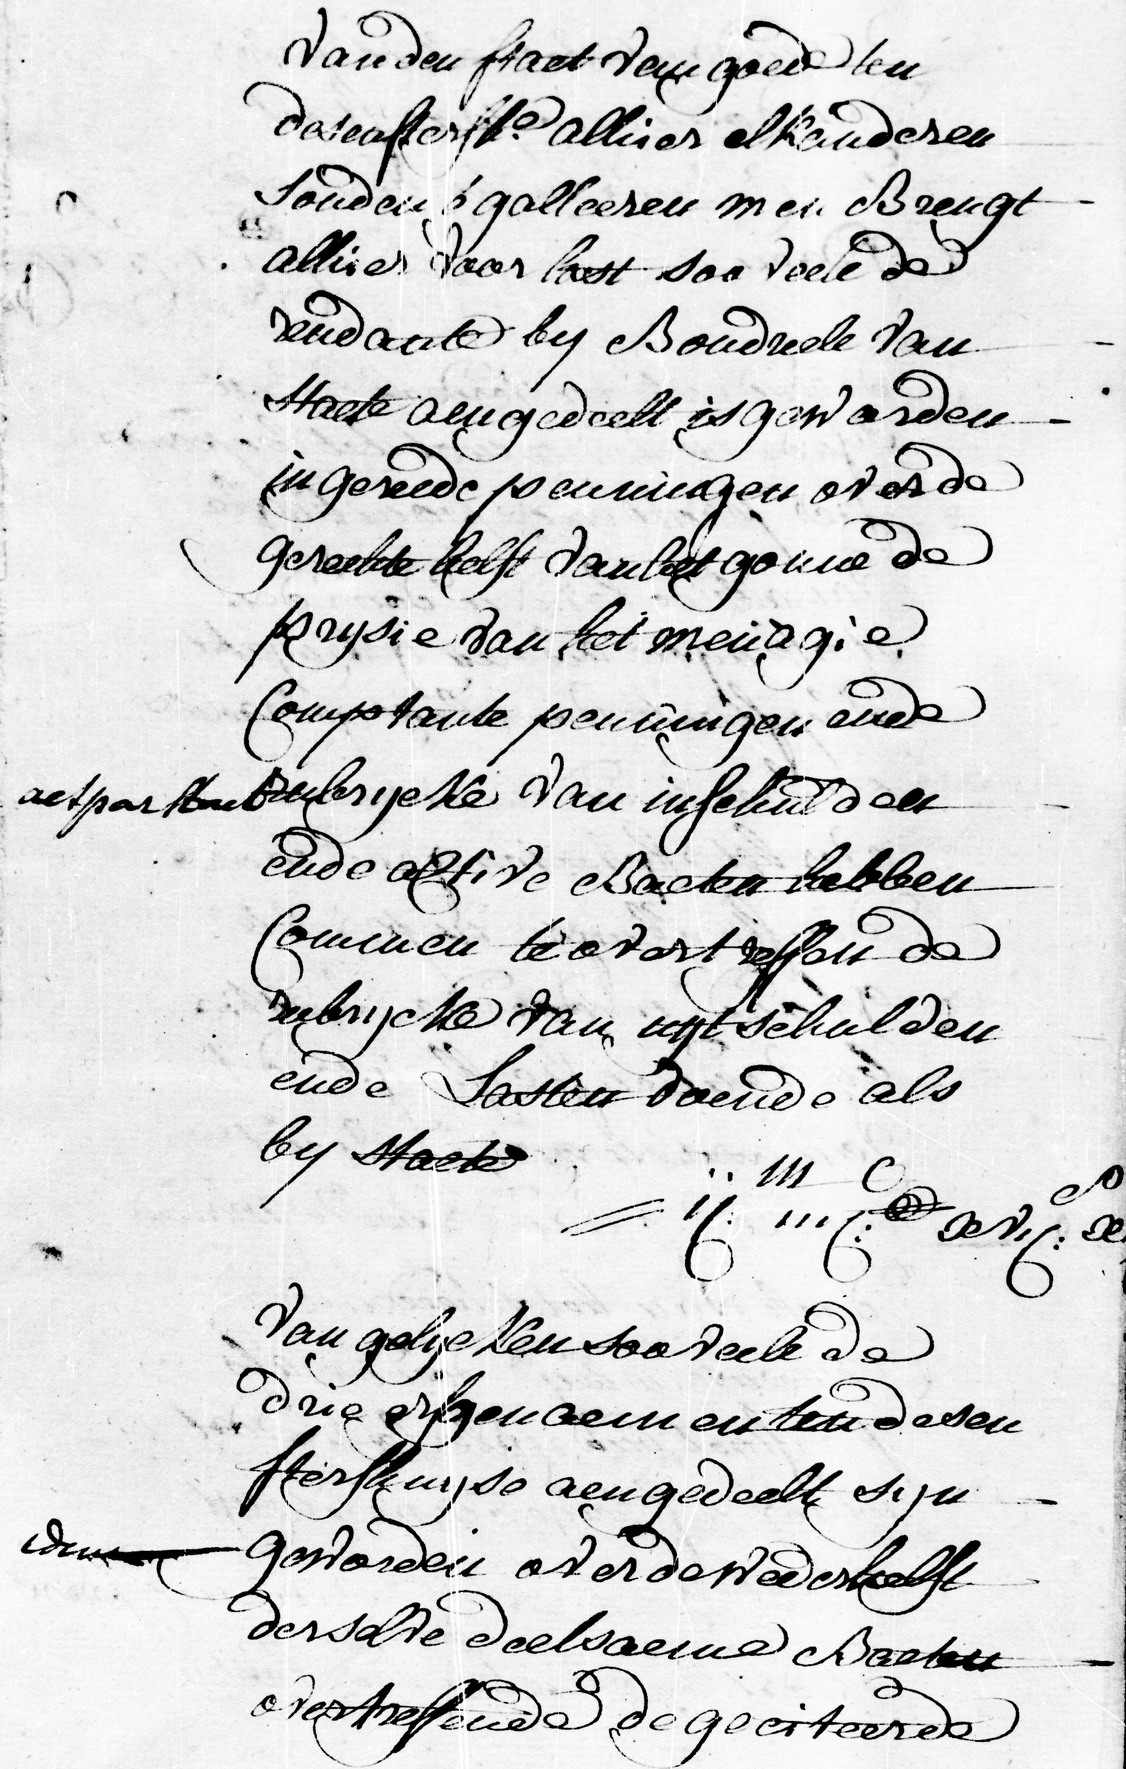 vanden staet van goede ten
desen sterfh.e alhier elkanderen
souden egalleeren men Brengt
alhier voor last soo veele de
rendante by Boudele van
staete aengedeelt is geworden
in gereede penningen over de
gerechte helft van het gonne de
prysie van het menagie
Comptante penningen ende
rubrycke van inschulden
ende active Baeten hebben
Commen te overtreffen de
rubrycke van uytschulden
ende Lasten doende als
by staete
van gelycken soo veele de
drie erfgenaemen ten desen
sterfhuyse aengedeelt syn
idem
geworden over de wederhelft
derselve deelsaeme Baeten
overtreffende de geciteerde